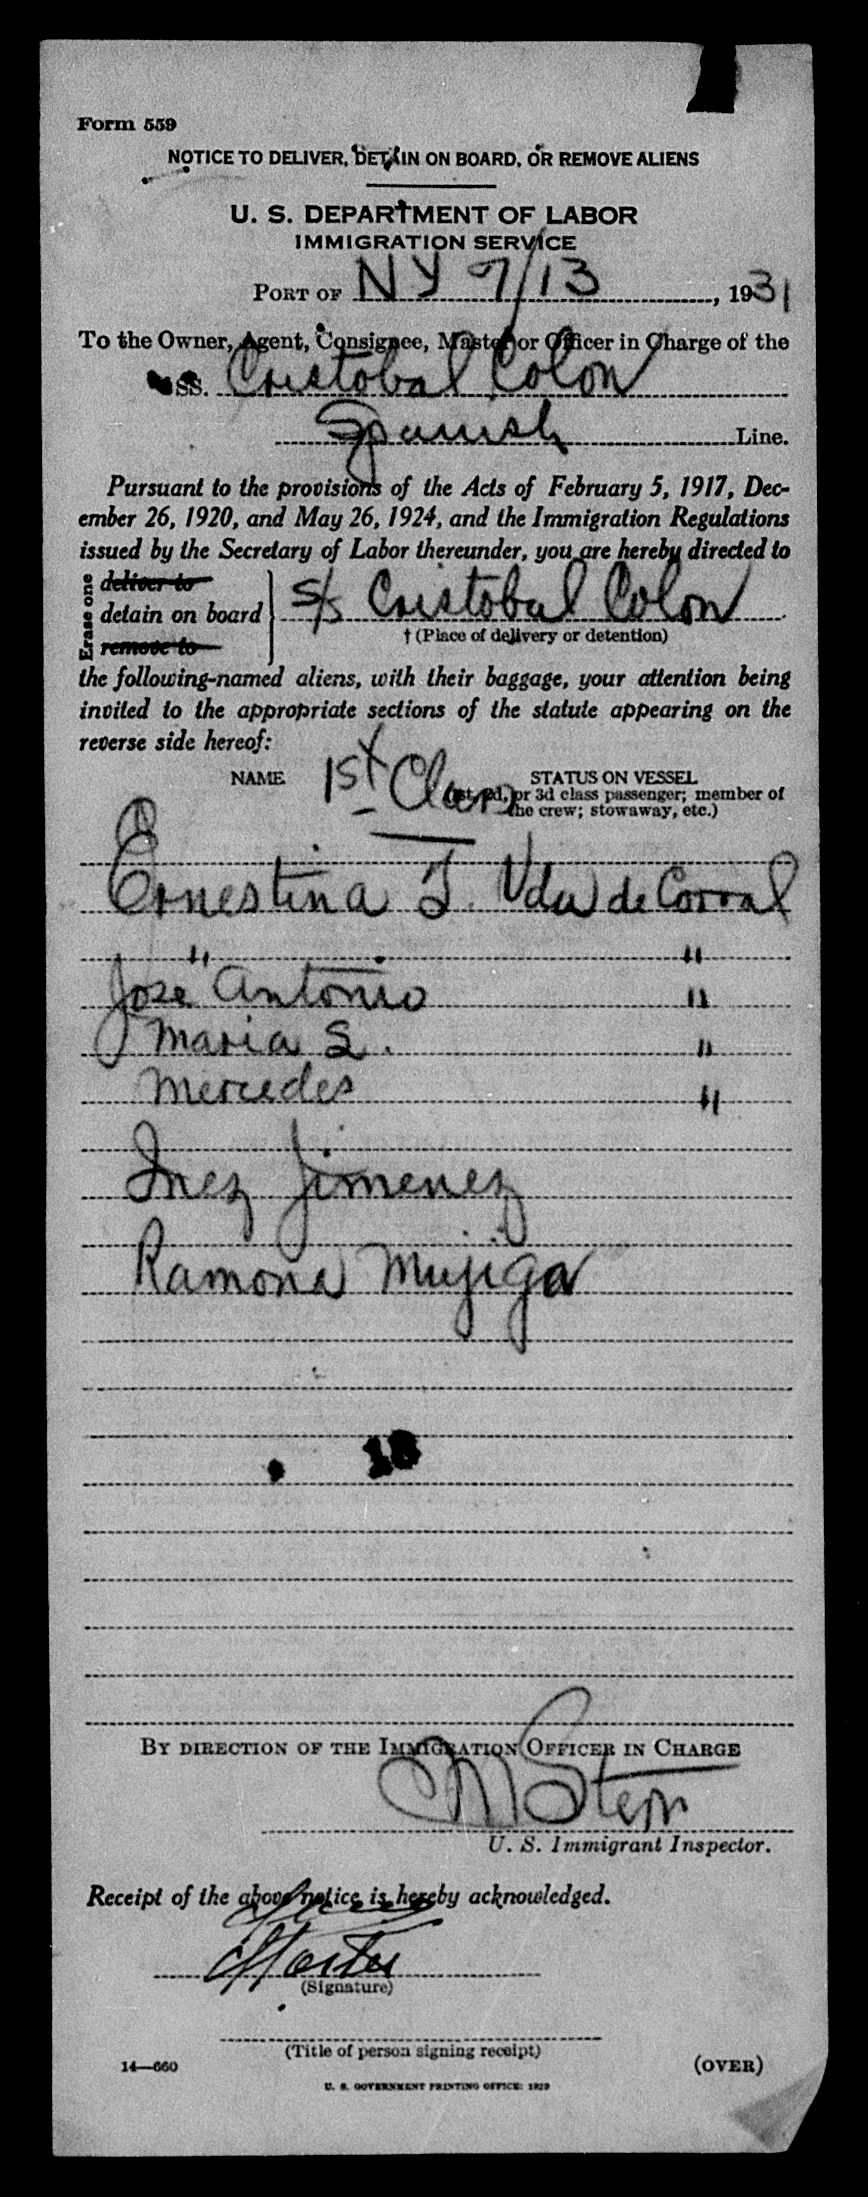 Form 559
NOTICE TO DELIVER, DETAIN ON BOARD, OR REMOVE ALIENS
U. S. DEPARTMENT OF LABOR
IMMIGRATION SERVICE
PORT OF NY 7/13, 1931
To the Owner, Agent, Consignee, Master or Officer in Charge of the
SS. Cristobal Colon
Spanish Line.
Pursuant to the provisions of the Acts of February 5, 1917, Dec-
ember 26, 1920, and May 26, 1924, and the Immigration Regulations
issued by the Secretary of Labor thereunder, you are hereby directed to
Erase one
deliver to
detain on board
remove to
S/S Cristobal Colon
† (Place of delivery or detention)
the following-named aliens, with their baggage, your attention being
invited to the appropriate sections of the statute appearing on the
reverse side hereof:
NAME 1st Class STATUS ON VESSEL
(1st, 2d, or 3d class passenger; member of
the crew; stowaway, etc.)
Ernestina T. Vda de Corral
" "
Jose Antonio "
Maria S. "
Mercedes "
Inez Jimenez
Ramona Mujiga
18
BY DIRECTION OF THE IMMIGRATION OFFICER IN CHARGE
U. S. Immigrant Inspector.
Receipt of the above notice is hereby acknowledged.
(Signature)
(Title of person signing receipt)
14—660 (OVER)
U. S. GOVERNMENT PRINTING OFFICE: 1929